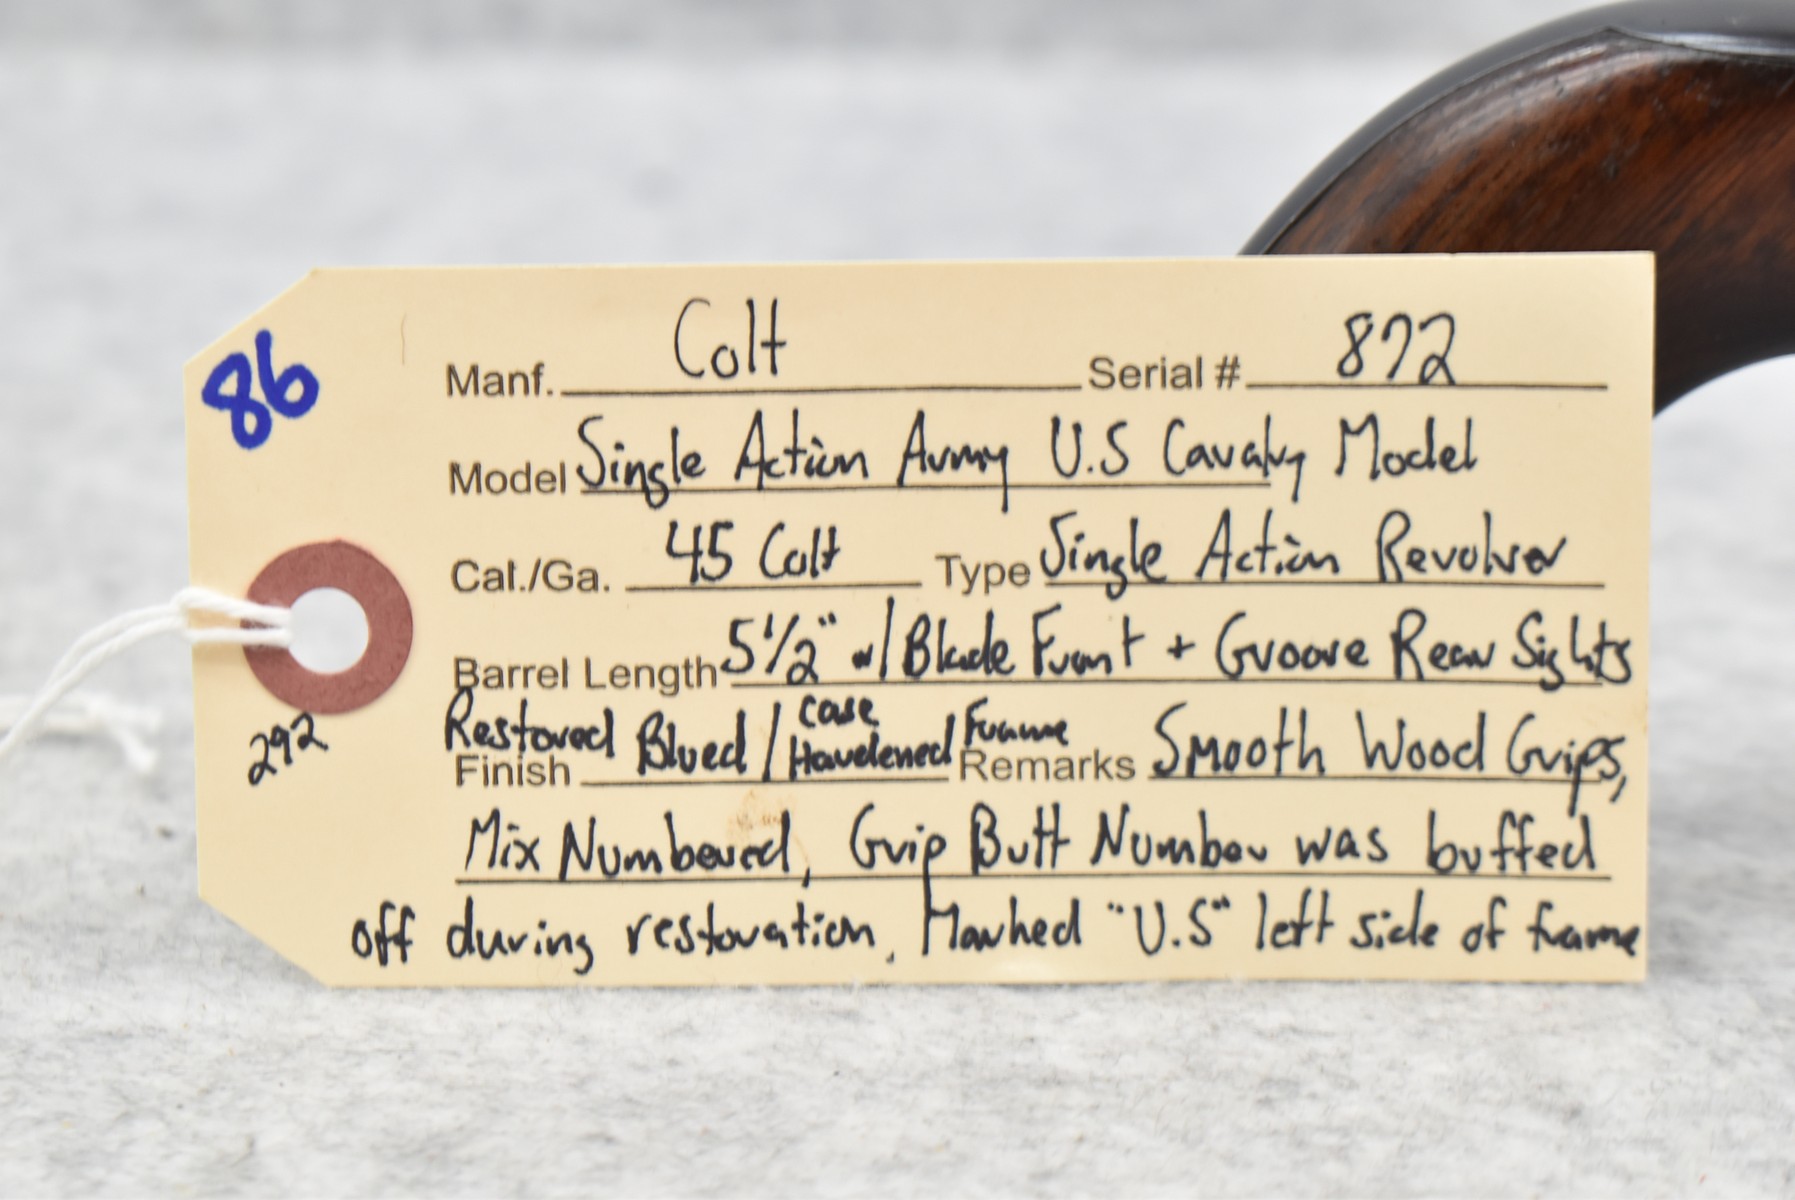 86
Manf. Colt Serial # 872
Model Single Action Army U.S Cavalry Model
Cal./Ga. 45 Colt Type Single Action Revolver
Barrel Length 5 1/2" w/ Blade Front + Groove Rear Sights
Finish Restored Blued / case Hardened Frame Remarks Smooth Wood Grips,
292
Mix Numbered, Grip Butt Number was buffed
off during restoration. Marked "U.S" left side of frame